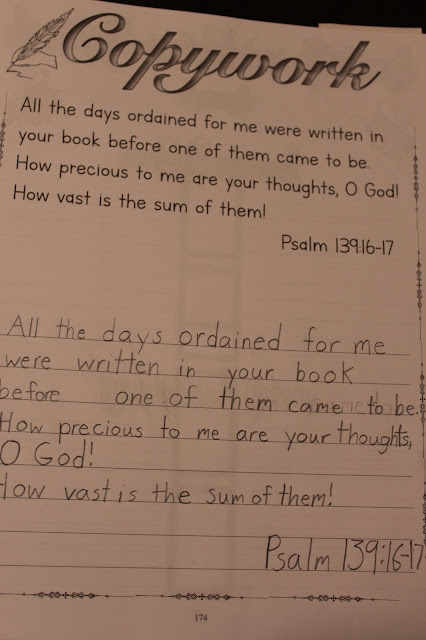 Copywork
All the days ordained for me were written in
your book before one of them came to be.
How precious to me are your thoughts, O God!
How vast is the sum of them!
Psalm 139:16-17
All the days ordained for me
were written in your book
before one of them came to be.
How precious to me are your thoughts,
O God!
How vast is the sum of them!
Psalm 139:16-17
174